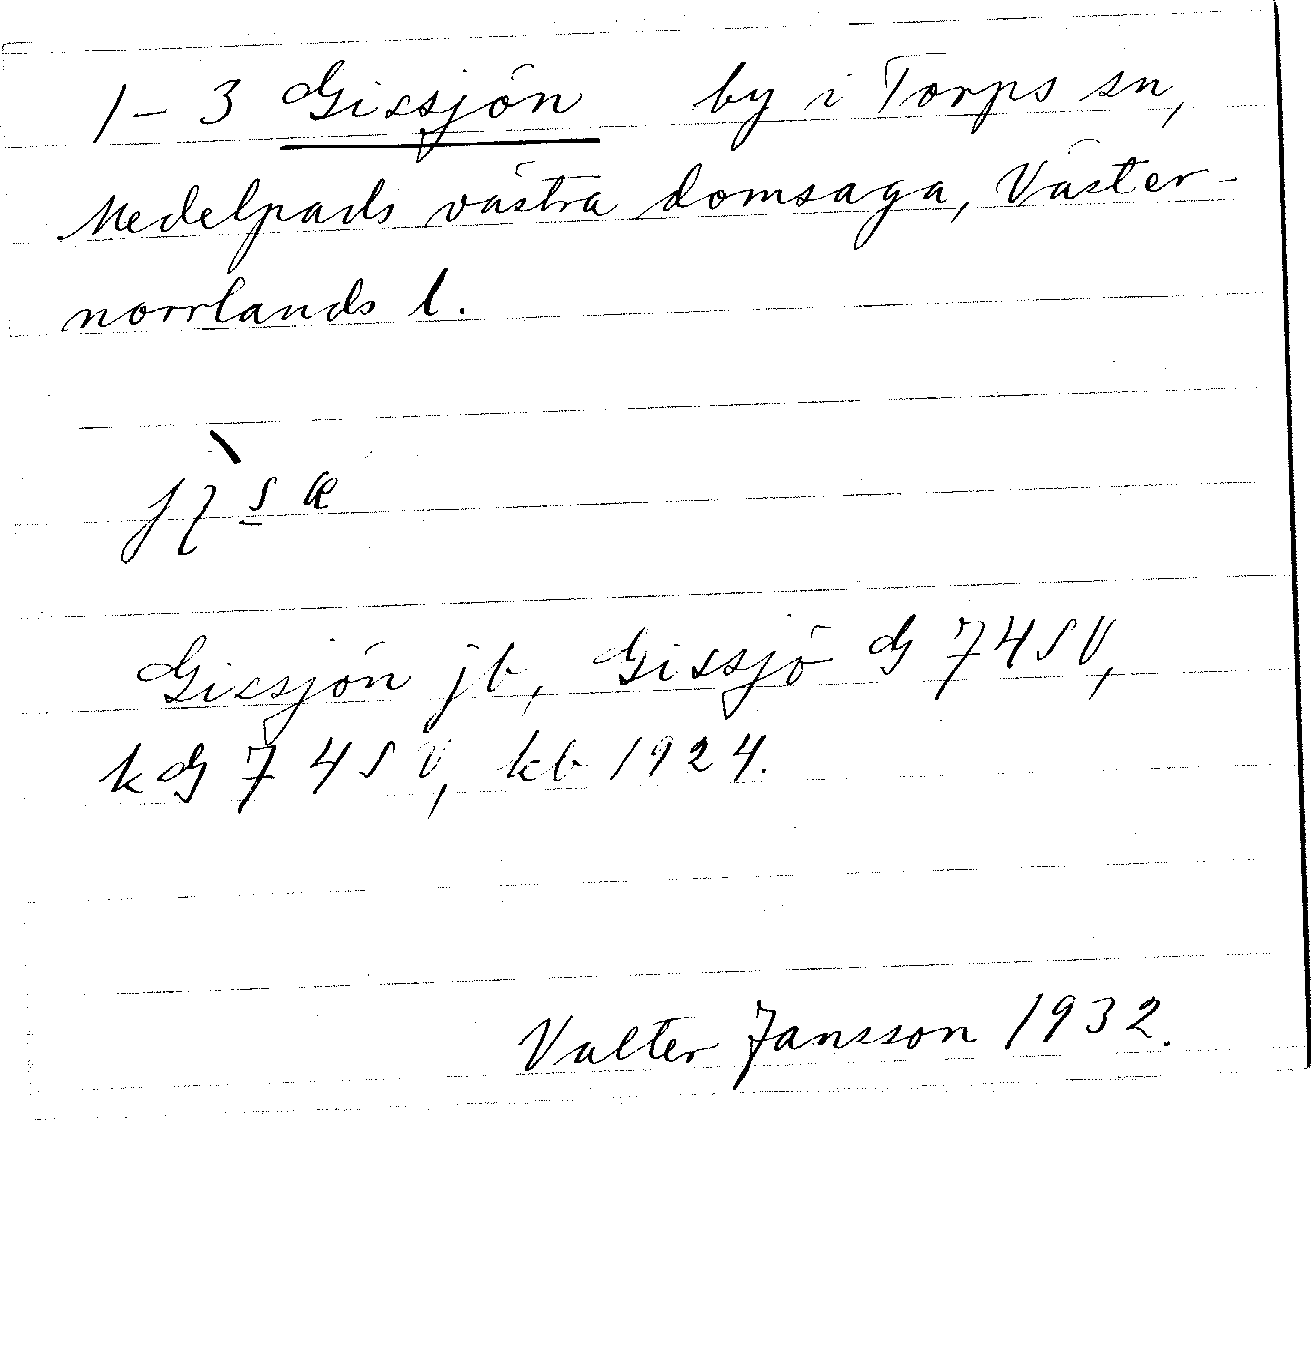 1–3 Gissjön by i Torps sn,
Medelpads västra domsaga, Väster-
norrlands l.
Gissjön jb, Gissjö G 74 SV,
kG 74 SV, kb 1924.
Valter Jansson 1932.